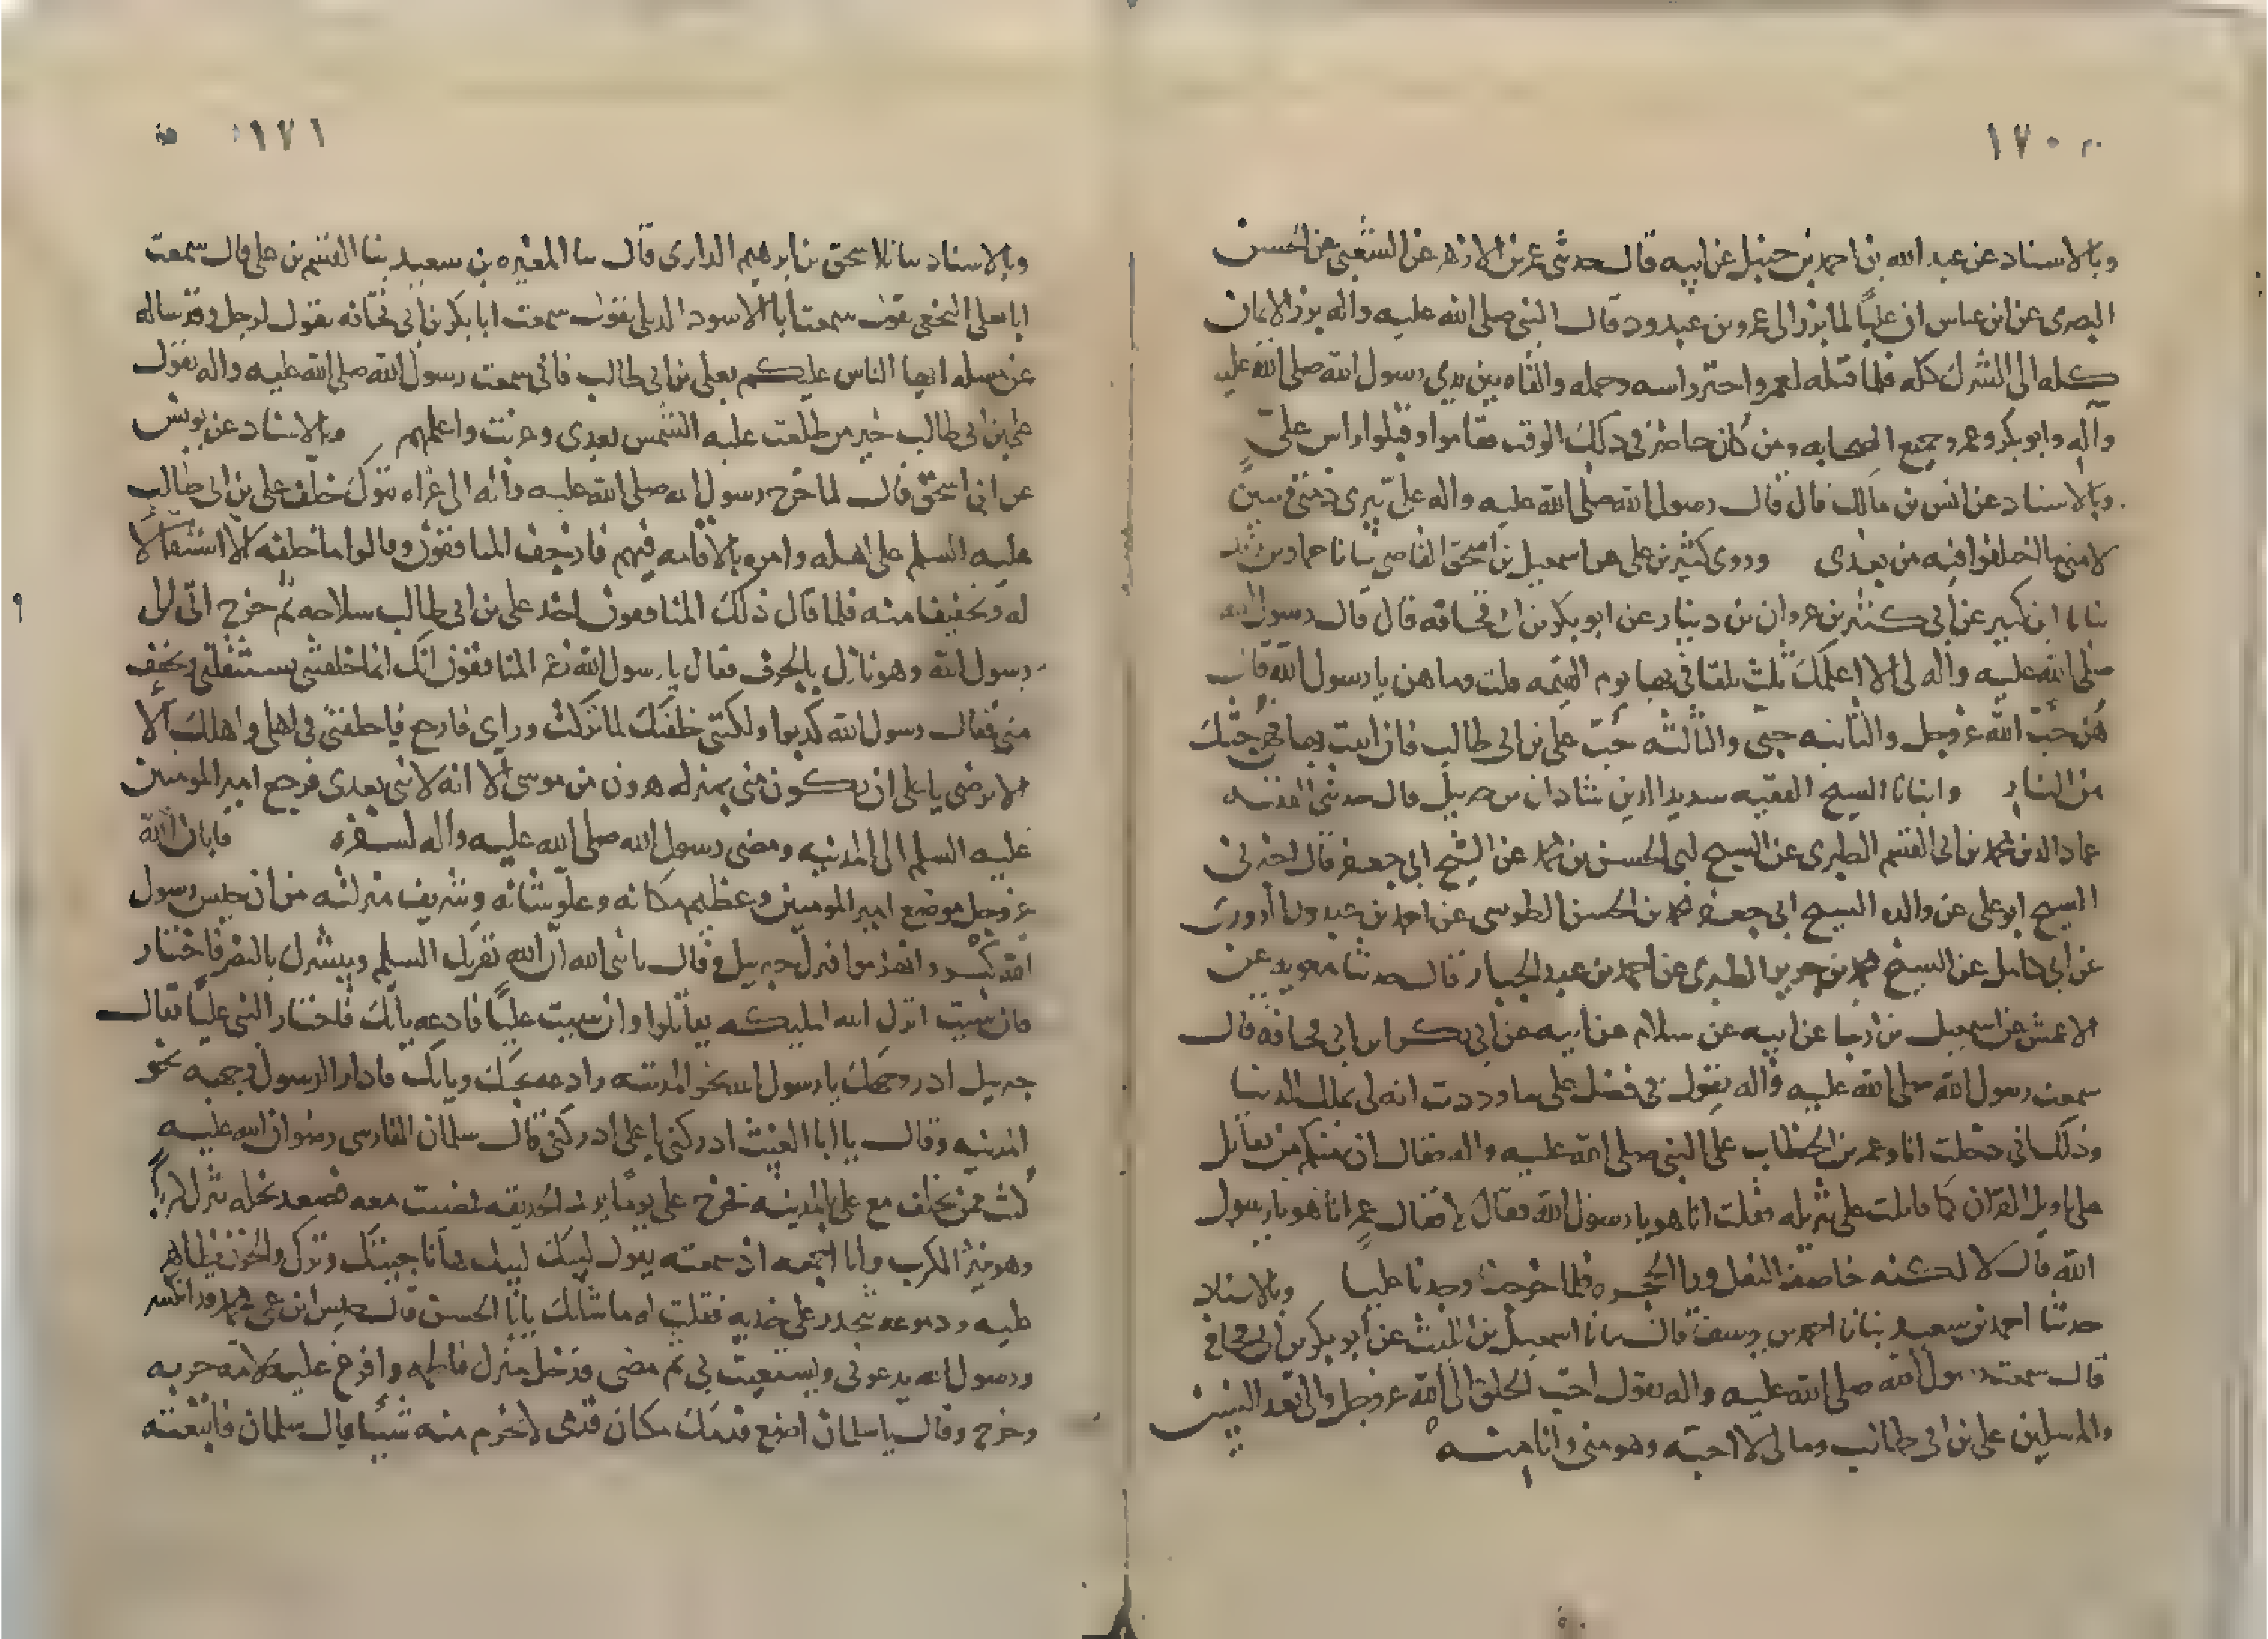 ١٧٠
وبالاسناد عن عبد الله بن احمد بن حنبل عن ابيه قال حدثنى عمر بن الازهر عن الشعبى عن الحسن
البصرى عن ابن عباس ان عليا لما برز الى عمرو بن عبدود قال النبى صلى الله عليه واله برز الايمان
كله الى الشرك كله فلما قتله لعمرو احتز راسه وحمله والقاه بين يدى رسول الله صلى الله عليه
وآله وابو بكر وعمر وجميع الصحابه ومن كان حاضر فى ذلك الوقت فقاموا وقبلوا راس على
وبالاسناد عن انس بن مالك قال قال رسول الله صلى الله عليه واله على يبرى ذمتى ويبين
لامتى ما اختلفوا فيه من بعدى وروى كثير بن على عن اسمعيل بن اسحق القاضى حماد بن
ابن كبير عن ابى كثير بن مروان بن دينار عن ابو بكر بن ابى قحافه قال قال رسول الله
صلى الله عليه واله لى الا اعلمك ثلث تلقانى بها يوم القيمه قلت وما هن يا رسول الله قال
هن حب الله عز وجل والثانيه حبى والثالثه حب على بن ابى طالب فان اتيت بها
من النار وانبانا الشيخ الفقيه سديد الدين شاذان بن جبريل قال حدثنى الفقيه
عماد الدين محمد بن ابى القسم الطبرى عن الشيخ ابى الحسن بن محمد عن الشيخ ابى جعفر قال اخبرنى
الشيخ ابو على عن والده الشيخ ابى جعفر محمد بن الحسن الطوسى عن احمد بن عبدون
عن ابى كامل عن الشيخ محمد بن جرير الطبرى عن احمد بن عبد الجبار قال حدثنا معويه عن
الاعمش عن اسمعيل بن رجا عن ابيه عن سلام عن ابيه عن ابى بكر ابن ابى قحافه قال
سمعت رسول الله صلى الله عليه واله يقول فى فضل على ما وددت انه لى بملك الدنيا
وذلك انى دخلت انا وعمر بن الخطاب على النبى صلى الله عليه واله فقال ان منكم من يقاتل
على تاويل القران كما قاتلت على تنزيله فقلت انا هو يا رسول الله فقال لا فقال عمر انا هو يا رسول
الله قال لا لكنه خاصف النعل ورا الحجره فلما خرجنا وجدنا عليا وبالاسناد
حدثنا احمد بن سعيد احمد بن يوسف قال اسمعيل بن الليث عن ابو بكر بن ابى قحافه
قال سمعت رسول الله صلى الله عليه واله يقول احب الخلق الى الله عز وجل والى بعد النبيين
والمرسلين على بن ابى طالب ومالى لا احبه وهو منى وانا منه
١٧١
وبالاسناد اسحق بن ابرهيم الدارى قال المغيره بن سعيد القسم بن على قال سمعت
ابا على النخعى يقول سمعت ابا الاسود الديلى يقول سمعت ابا بكر بن ابى قحافه يقول لرجل وقد ساله
عن مسله ايها الناس عليكم بعلى بن ابى طالب فانى سمعت رسول الله صلى الله عليه واله يقول
على بن ابى طالب خير من طلعت عليه الشمس بعدى وغربت واعلمهم وبالاسناد عن يونس
عن ابى اسحق قال لما خرج رسول الله صلى الله عليه واله الى غزاه تبوك خلف على بن ابى طالب
عليه السلم على اهله وامره بالاقامه فيهم فارجف المنافقون وقالوا ما خلفه الا استثقالا
له وتخفيفا منه فلما قال ذلك المنافقون اخذ على بن ابى طالب سلاحه ثم خرج اتى الى
رسول الله وهو نازل بالجرف فقال يا رسول الله زعم المنافقون انك انما خلفتنى تستثقلنى وتخفف
منى فقال رسول الله كذبوا ولكنى خلفتك لما تركت وراى فارجع فاخلفنى فى اهلى واهلك
الا ترضى يا على ان تكون منى بمنزله هرون من موسى الا انه لا نبى بعدى فرجع امير المومنين
عليه السلم الى المدينه ومضى رسول الله صلى الله عليه واله لسفره فابان الله
عز وجل موضع امير المومنين وعظيم مكانه وعلو شانه وشريف منزلته من ان جيش رسول
الله كسر وانهزموا فنزل جبريل وقال يا نبى الله ان الله يقريك السلم ويبشرك بالنصر فاختار
فان شيت انزل الله المليكه يقاتلوا وان شيت عليا فادعه ياتك فاختار النبى عليا فقال
جبريل ادر وجهك يا رسول الله نحو المدينه وادعه يجبك وياتك فادار الرسول وجهه نحو
المدينه وقال يا ابا الغيث ادركنى يا على ادركنى قال سلمان الفارسى رضوان الله عليه
كنت ممن تخلف مع على بالمدينه فخرج على يوما يريد الحديقه فمضيت معه فصعد نخله
وهو الكرب وانا اجمعه اذ سمعته يقول لبيك لبيك ها انا جيتك ونزل والحزن ظاهر
عليه ودموعه تتحدر على خديه فقلت له ما شانك يا ابا الحسن قال جيش ابن عمى محمد قد انكسر
ورسول الله يدعونى ويستغيث بى ثم مضى فدخل منزل فاطمه وافرغ عليه لامه حربه
وخرج وقال يا سلمان اضع قدمك مكان قدمى لا تخرم منه شيئا قال سلمان فاتبعته